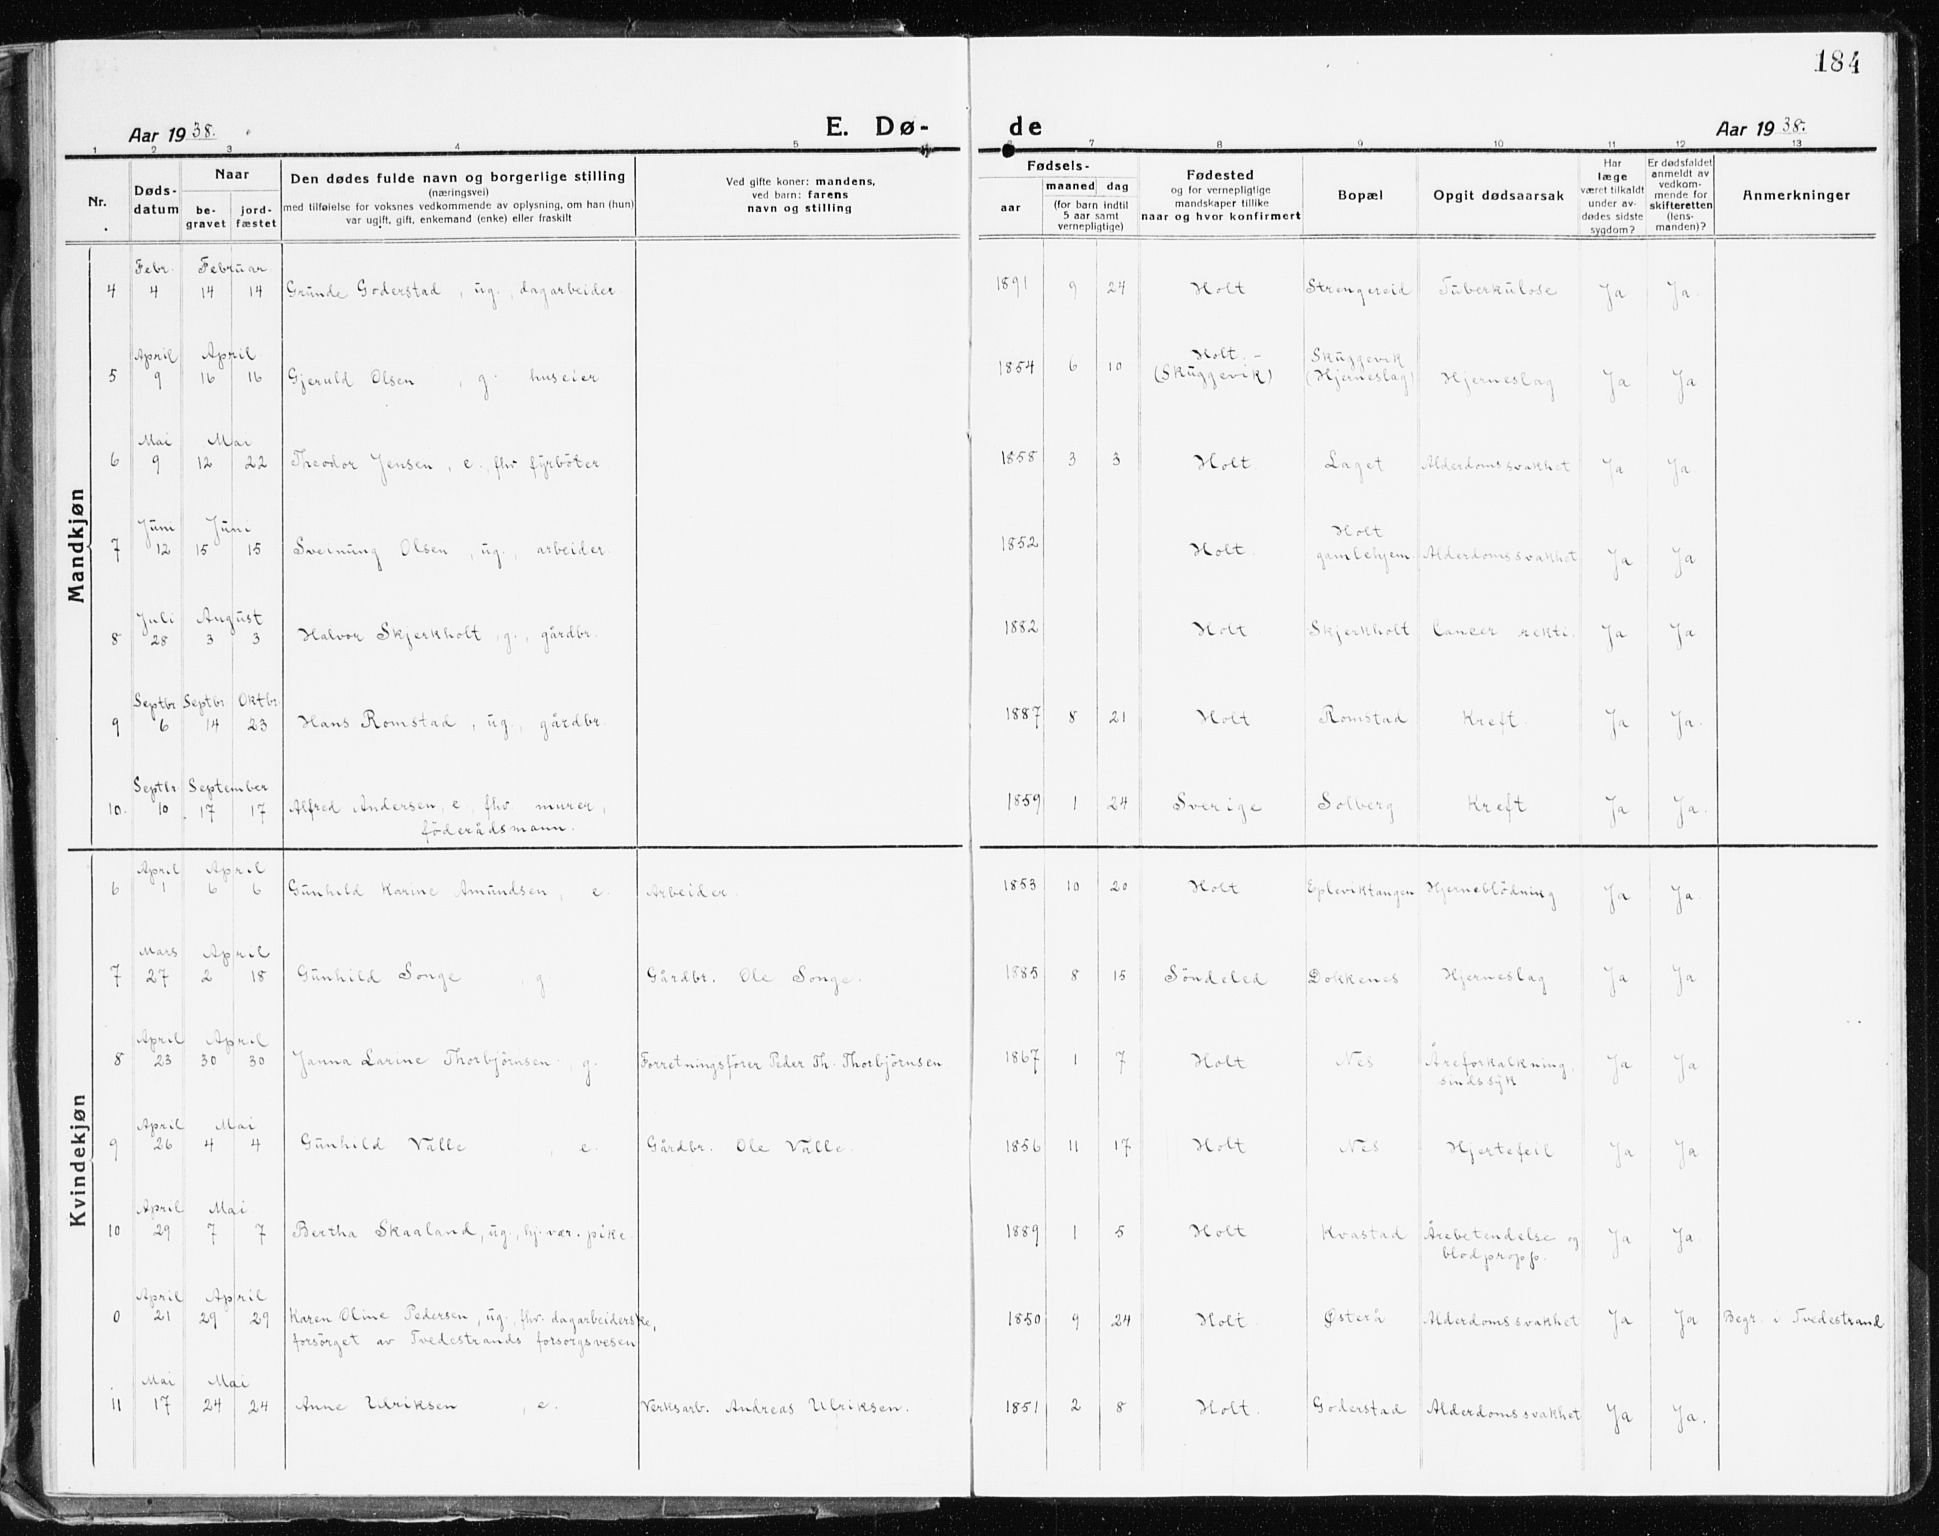 184
Aar 1938. E. Dø- de Aar 1938.
1 2 3 4 5 6 7 8 9 10 11 12 13
Nr.
Døds-
datum
Naar
be-
gravet
jord-
fæstet
Den dødes fulde navn og borgerlige stilling
(næringsvei)
med tilføielse for voksnes vedkommende av oplysning, om han (hun)
var ugift, gift, enkemand (enke) eller fraskilt
Ved gifte koner: mandens,
ved barn: farens
navn og stilling
Fødsels-
aar
maaned dag
(for barn indtil
5 aar samt
vernepligtige)
Fødested
og for vernepligtige
mandskaper tillike
naar og hvor konfirmert
Bopæl
Opgit dødsaarsak
Har
læge
været tilkaldt
under av-
dødes sidste
sygdom?
Er dødsfaldet
anmeldt av
vedkom-
mende for
skifteretten
(lens-
manden)?
Anmerkninger
Mandkjøn
Febr. Februar
4 4 14 14 Grunde Goderstad, ug., dagarbeider. 1891 9 24 Holt Strengereid Tuberkulose Ja Ja.
April April
5 9 16 16 Gjeruld Olsen, g. huseier 1854 6 10 Holt - (Skuggevik) Skuggevik (Hjerneslag) Hjerneslag Ja Ja
Mai Mai
6 9 12 22 Theodor Jensen, e., fhv. fyrböter. 1858 3 3 Holt. Laget Alderdomssvakhet Ja Ja.
Juni Juni
7 12 15 15 Sveinung Olsen, ug., arbeider. 1852 Holt. Holt gamlehjem Alderdomssvakhet Ja Ja
Juli August
8 28 3 3 Halvor Skjerkholt, g., gårdbr. 1882 Holt. Skjerkholt Cancer rekti. Ja Ja
Septbr. Septbr. Oktbr.
9 6 14 23 Hans Romstad, ug., gårdbr. 1887 8 21 Holt Romstad Kreft. Ja Ja.
Septbr. September
10. 10 17 17 Alfred Andersen, e., fhv. murer,
föderådsmann. 1859 1 24 Sverige Solberg Kreft Ja Ja.
Kvindekjøn
April April
6 1 6 6 Gunhild Karine Amundsen, e. Arbeider. 1853 10 20 Holt Epleviktangen Hjerneblödning Ja Ja.
Mars April
7 27 2 18 Gunhild Songe, g Gårdbr. Ole Songe. 1885 8 15 Söndeled Dokkenes Hjerneslag Ja Ja
April April
8 23 30 30 Janna Larine Thorbjörnsen, g. Forretningsförer Peder Th. Thorbjörnsen 1867 1 7 Holt Nes Åreforkalkning,
sindssyk Ja Ja
April Mai
9 26 4 4 Gunhild Valle, e. Gårdbr. Ole Valle. 1856 11 17 Holt Nes Hjertefeil Ja Ja
April Mai.
10 29 7 7 Bertha Skaaland, ug., hj. vær. pike. 1889 1 5 Holt Kvastad Årebetendelse og
blodpropp. Ja Ja.
April April
0 21 29 29 Karen Oline Pedersen, ug., fhv. dagarbeiderske,
forsörget av Tvedestrands forsorgsvesen 1850 9 24 Holt. Østerå Alderdomssvakhet Ja Ja Begr. i Tvedestrand
Mai Mai
11 17 24 24 Anne Ulriksen, e. Verksarb. Andreas Ulriksen. 1851 2 8 Holt. Goderstad Alderdomssvakhet Ja Ja.